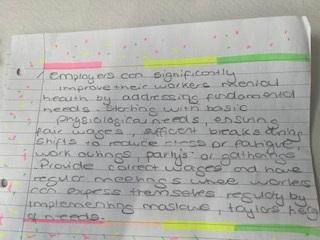 Employers can significantly
improve their workers mental
health by addressing fundamental
needs. Starting with basic
physiological needs, ensuring
fair wages, efficent breaks during
shifts to reduce or fatigue,
work outings, partys or gatherings
Provide correct wages and have
regular meetings where workers
can express themselves regulary by
implementing maslows, taylors
of needs.